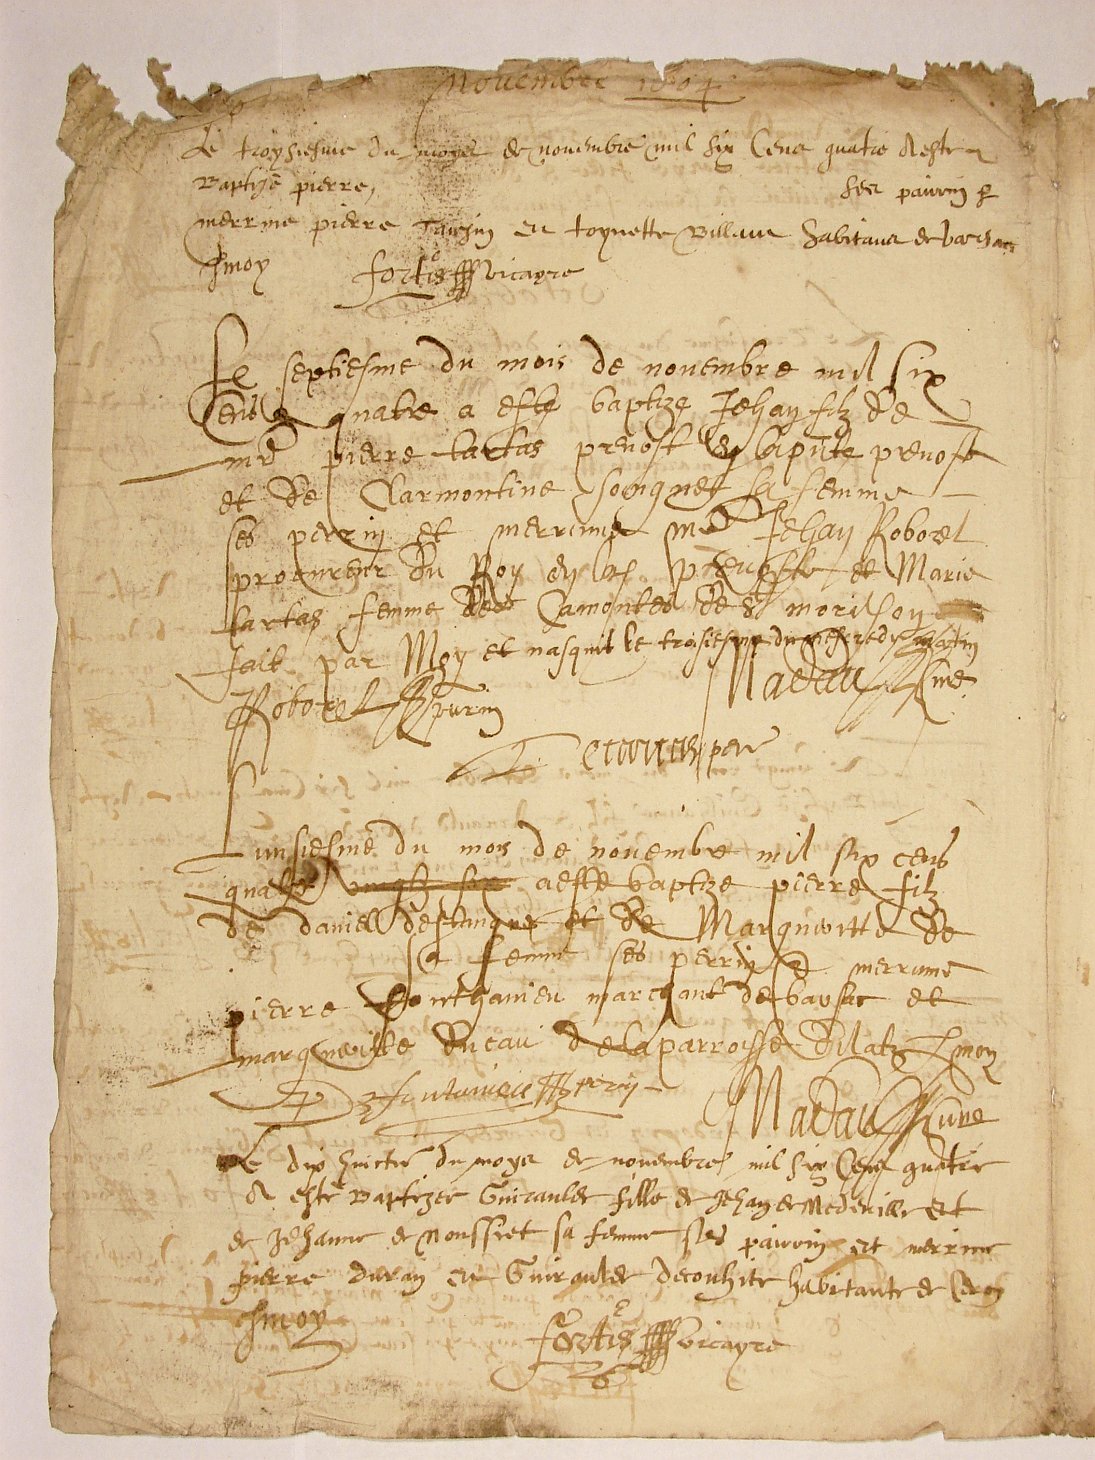 Novembre 1604
Le troysiesme du moys de novembre mil six Cens quatre A este
Baptizé pierre, ses pairin &
merrine pierre et toynette habitans de barsac
Fortis vicayre
Le septiesme du mois de novembre mil six
Cens quatre a este baptize Jehan filz de
me pierre tartas prevost en la pnte prevoste
et de Clarmontine sa femme
ses perrin et merrine me Jehan Roborel
procureur du Roy en la prevoste et Marie
tartas femme de
fait par Moy et nasquit le troisiesme du
Roborel parin Nadau
pere
L unsiesme du mois de novembre mil six cens
quatre a este baptize pierre filz
de daniel et de Marguiritte de
sa femme ses perrin & merrine
pierre marchant de barsac et
marguiritte ducau de la parroisse dilatz moy
fontanieu Nadau
Le dix huictie du moys de novembre mil six Cens quatre
A este Baptizée Guiraulde fille de Jehan de Medeville et
de Jehanne de Moussiet sa femme ses pairin et merrine
pierre duran et Guiraulde habitants de Ceron
Fortis vicayre